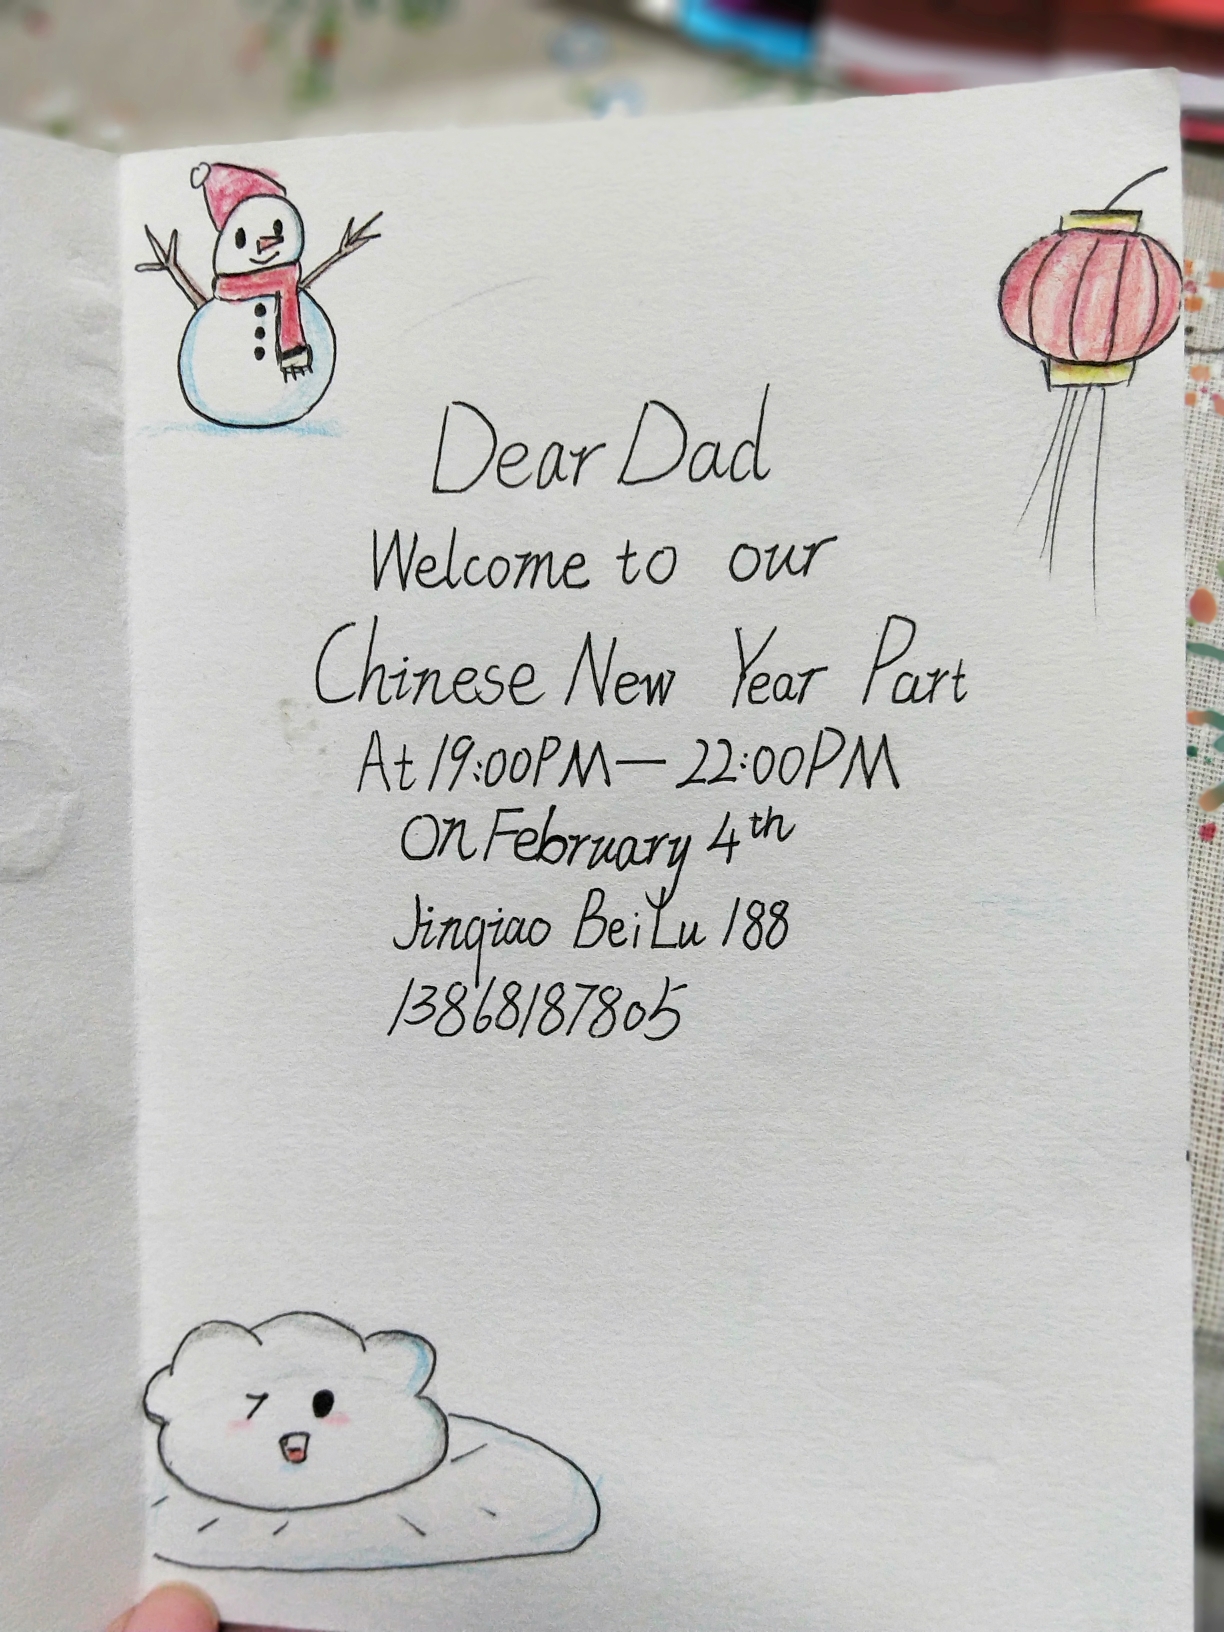 Dear Dad
Welcome to our
Chinese New Year Part
At 19:00PM — 22:00PM
On February 4th
Jinqiao Bei Lu 188
13868187805